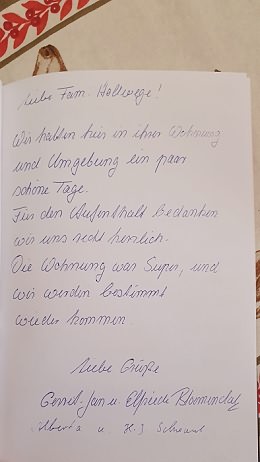 Liebe Fam. Hellwege!
Wir hatten hier in ihrer Wohnung
und Umgebung ein paar
schöne Tage.
Für den Aufenthalt bedanken
wir uns recht herzlich.
Die Wohnung war Super, und
wir werden bestimmt
wieder kommen
Liebe Grüße
Gerrit-Jan u. Elfriede Bloemendal
Alberta u. H.J